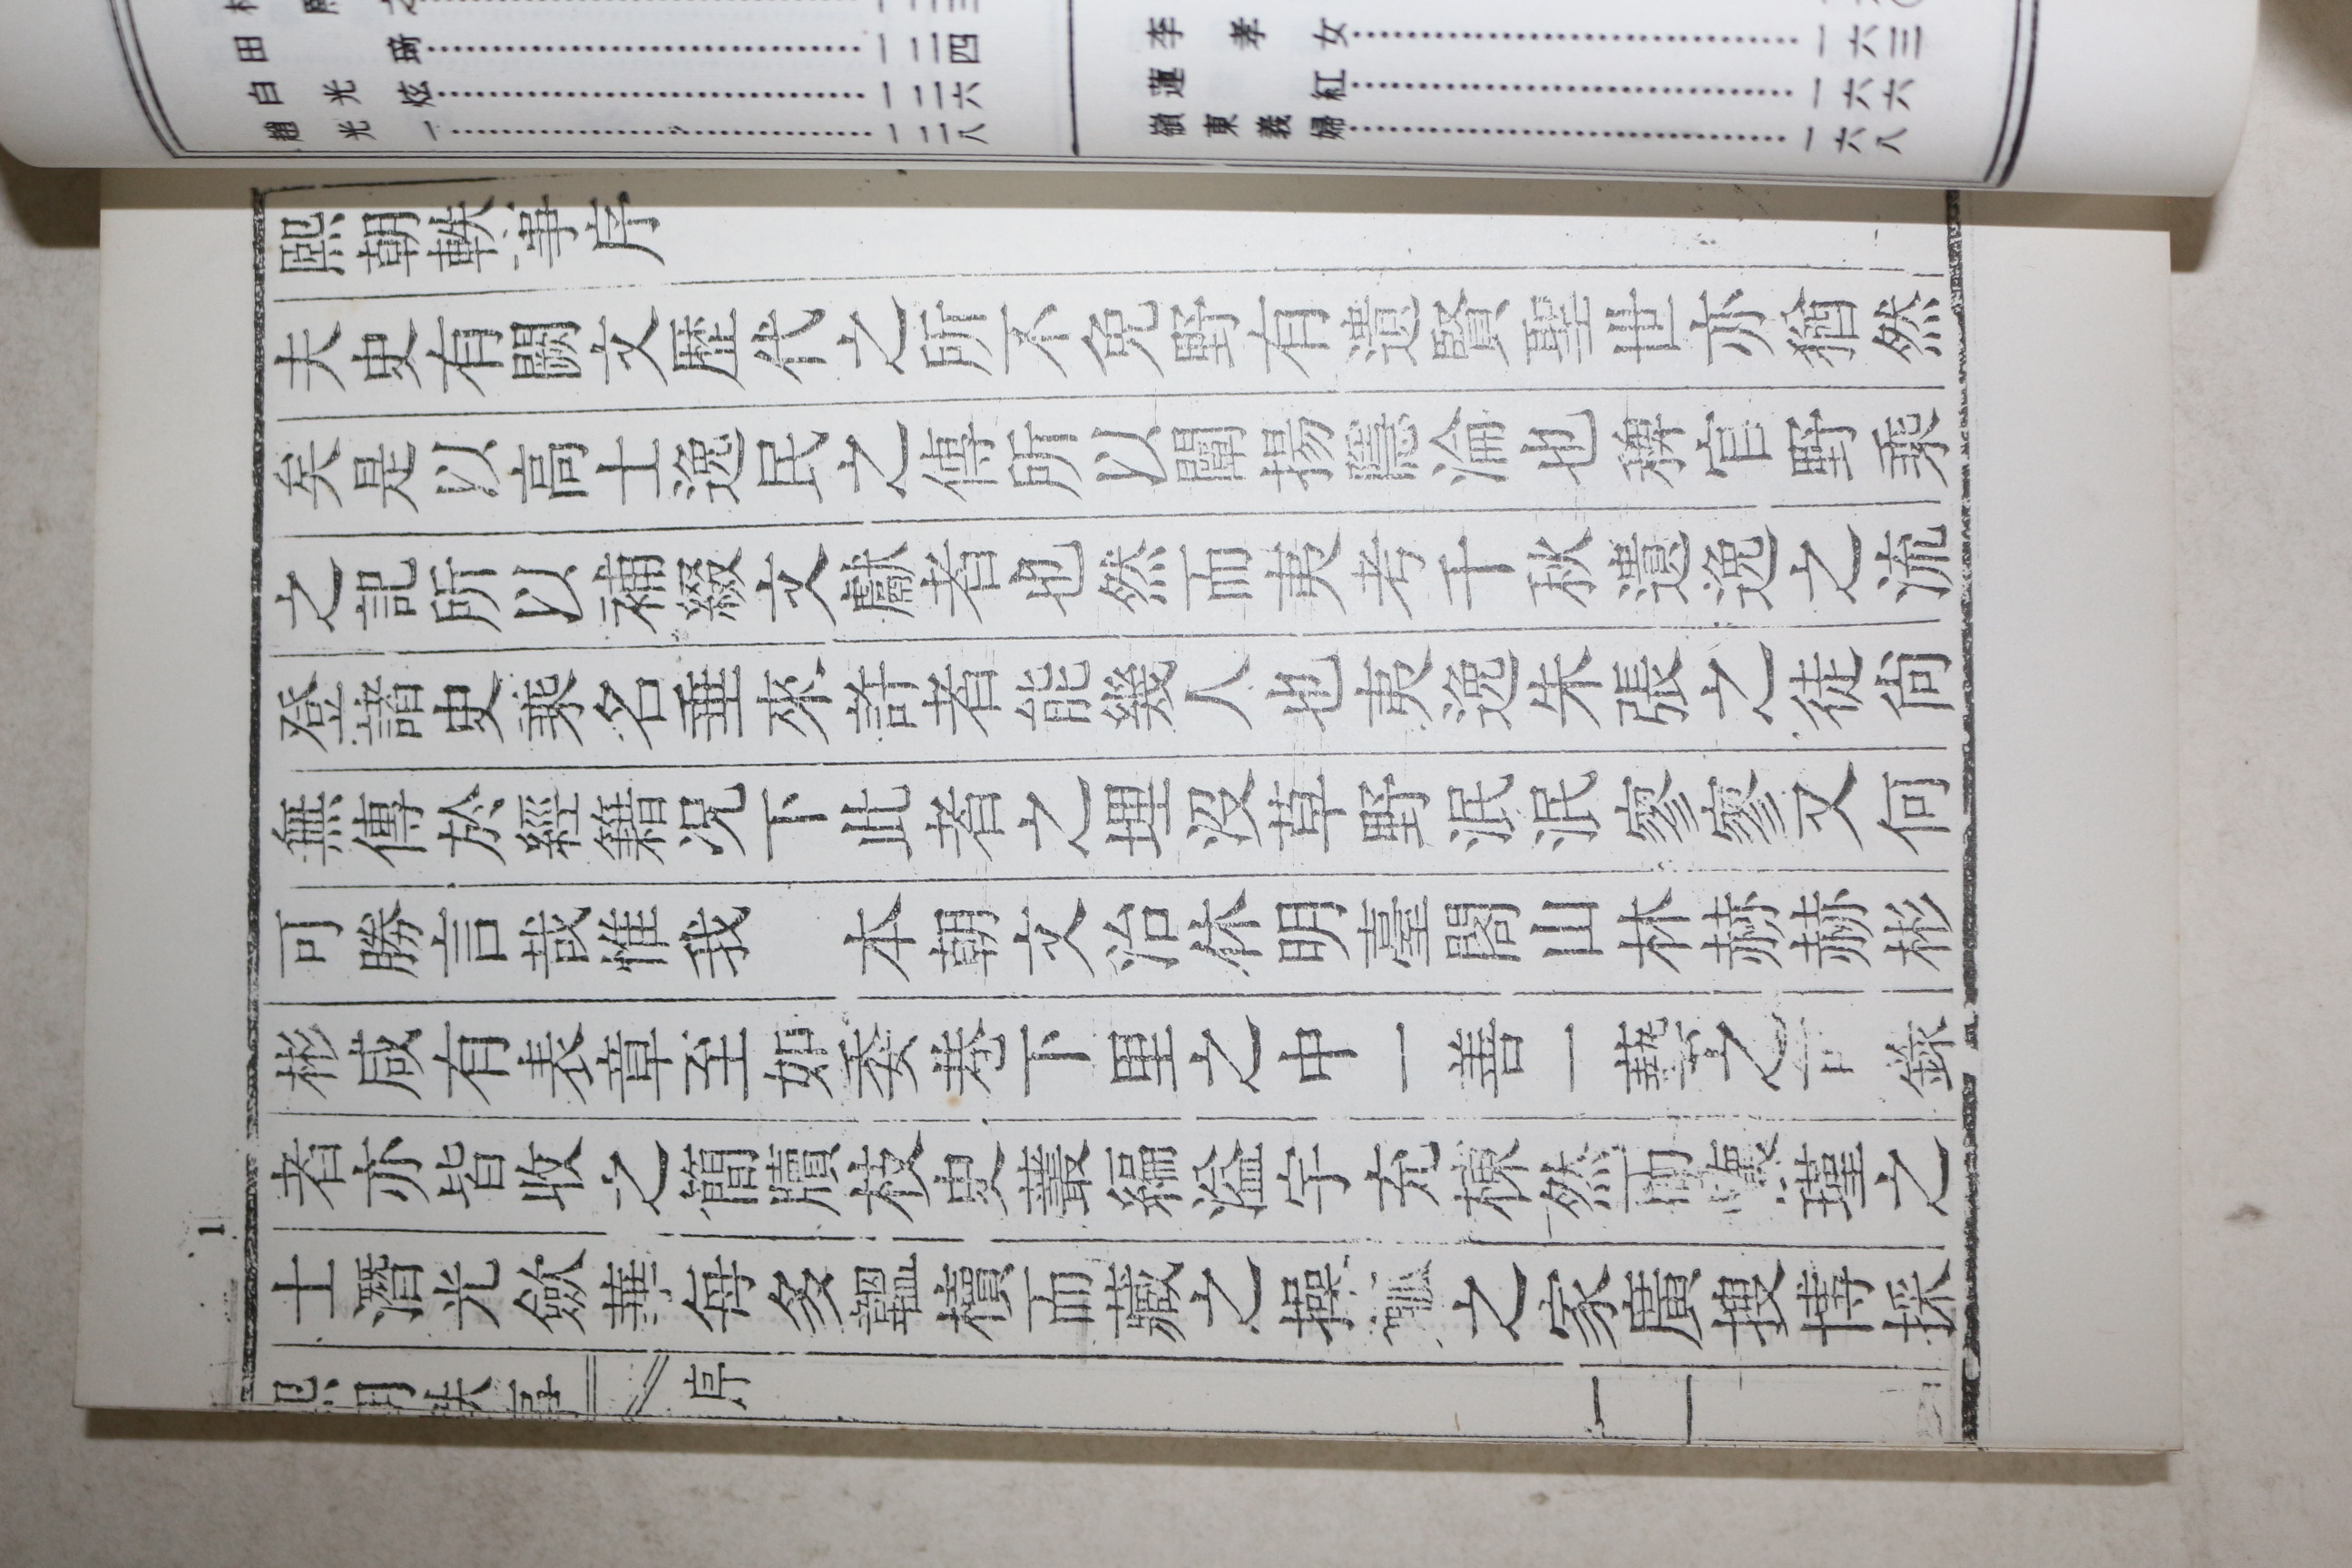 李孝女……………一六三
蓮紅……………一六六
嶺東義婦……………一六八
田琦……………一二四
白光炫……………一二六
趙光一……………一二八
1
熙朝軼事序
夫史有闕文歷代之所不免野有遺賢聖世亦猶然
矣是以高士逸民之傳所以闡揚隱淪也稗官野乘
之記所以補綴文獻者也然而夷考千秋遺逸之流
登諸史乘名垂來許者能幾人也夷逸朱張之徒尙
無傳於經籍况下此者之埋沒草野泯泯寥寥又何
可勝言哉惟我 本朝文治休明臺閣山林赫赫彬
彬咸有表章至如委巷下里之中一善一藝之可錄
者亦皆收之簡牘枝史叢編溢宇充棟然而懷瑾之
士潛光歛華每多韞櫝而藏之操觚之家廣搜博採
熙朝軼事 序 一